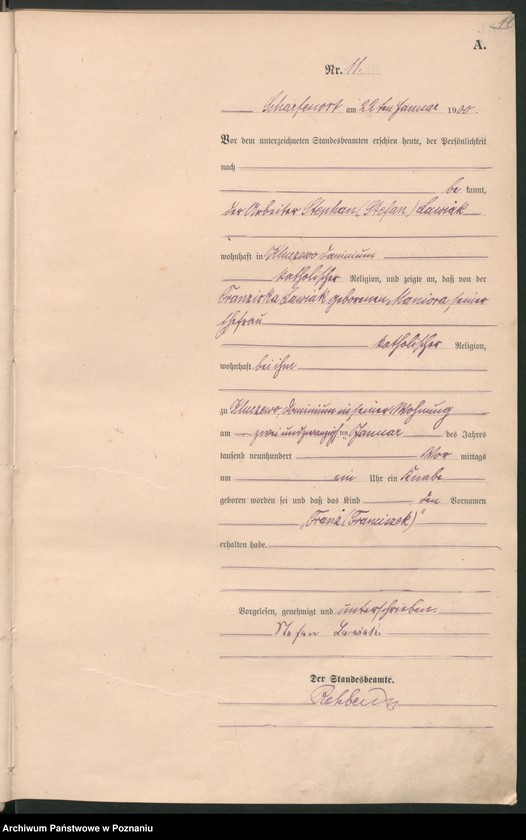 A.
Nr. 11.
Scharfenort am 22ten Januar 1900.
Vor dem unterzeichneten Standesbeamten erschien heute, der Persönlichkeit
nach
be kannt,
der Arbeiter Stephan (Stefan) Lawiak
wohnhaft in Kluczewo Dominium
katholischer Religion, und zeigte an, daß von der
Franziska Lawiak geborenen Maniora, seiner
Ehefrau
katholischer Religion,
wohnhaft bei ihm
zu Kluczewo, Dominium in seiner Wohnung
am zwei und zwanzigsten Januar des Jahres
tausend neunhundert Vor mittags
um ein Uhr ein Knabe
geboren worden sei und daß das Kind den Vornamen
„Franz (Franciszek)"
erhalten habe.
Vorgelesen, genehmigt und unterschrieben.
Stefan Lawiak
Der Standesbeamte.
Archiwum Państwowe w Poznaniu